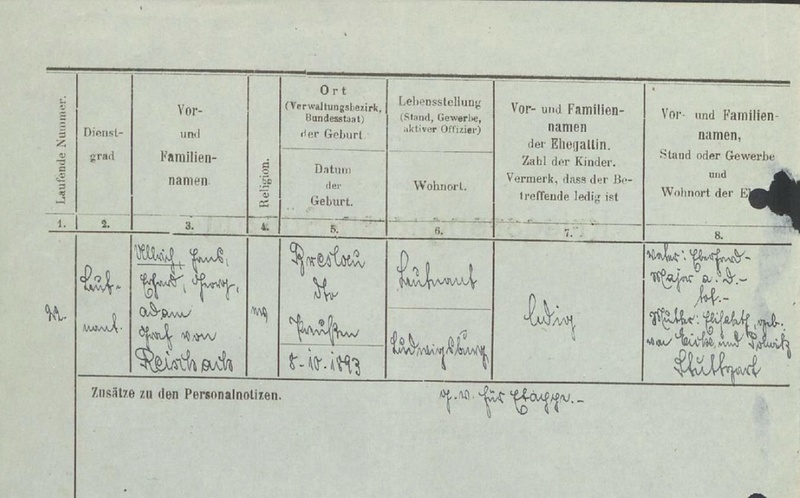 Laufende Nummer.
Dienst-
grad
Vor-
und
Familien-
namen
Religion.
Ort
(Verwaltungsbezirk,
Bundesstaat)
der Geburt
Datum
der
Geburt.
Lebensstellung
(Stand, Gewerbe,
aktiver Offizier)
Wohnort.
Vor- und Familien-
namen
der Ehegattin.
Zahl der Kinder.
Vermerk, dass der Be-
treffende ledig ist
Vor- und Familien-
namen,
Stand oder Gewerbe
und
Wohnort der
1. 2. 3. 4. 5. 6. 7. 8.
22.
Leut-
nant.
Ullrich, Hans,
Erhard, Georg,
Adam
Graf von
Reischach
Breslau
dto
Preußen
8.10.1893
Leutnant
Ludwigsburg
ledig
Vater: Eberhard-
Major a. D.-
Mutter: Elisabeth, geb.
von
und
Stuttgart
Zusätze zu den Personalnotizen.
für Etappe.-